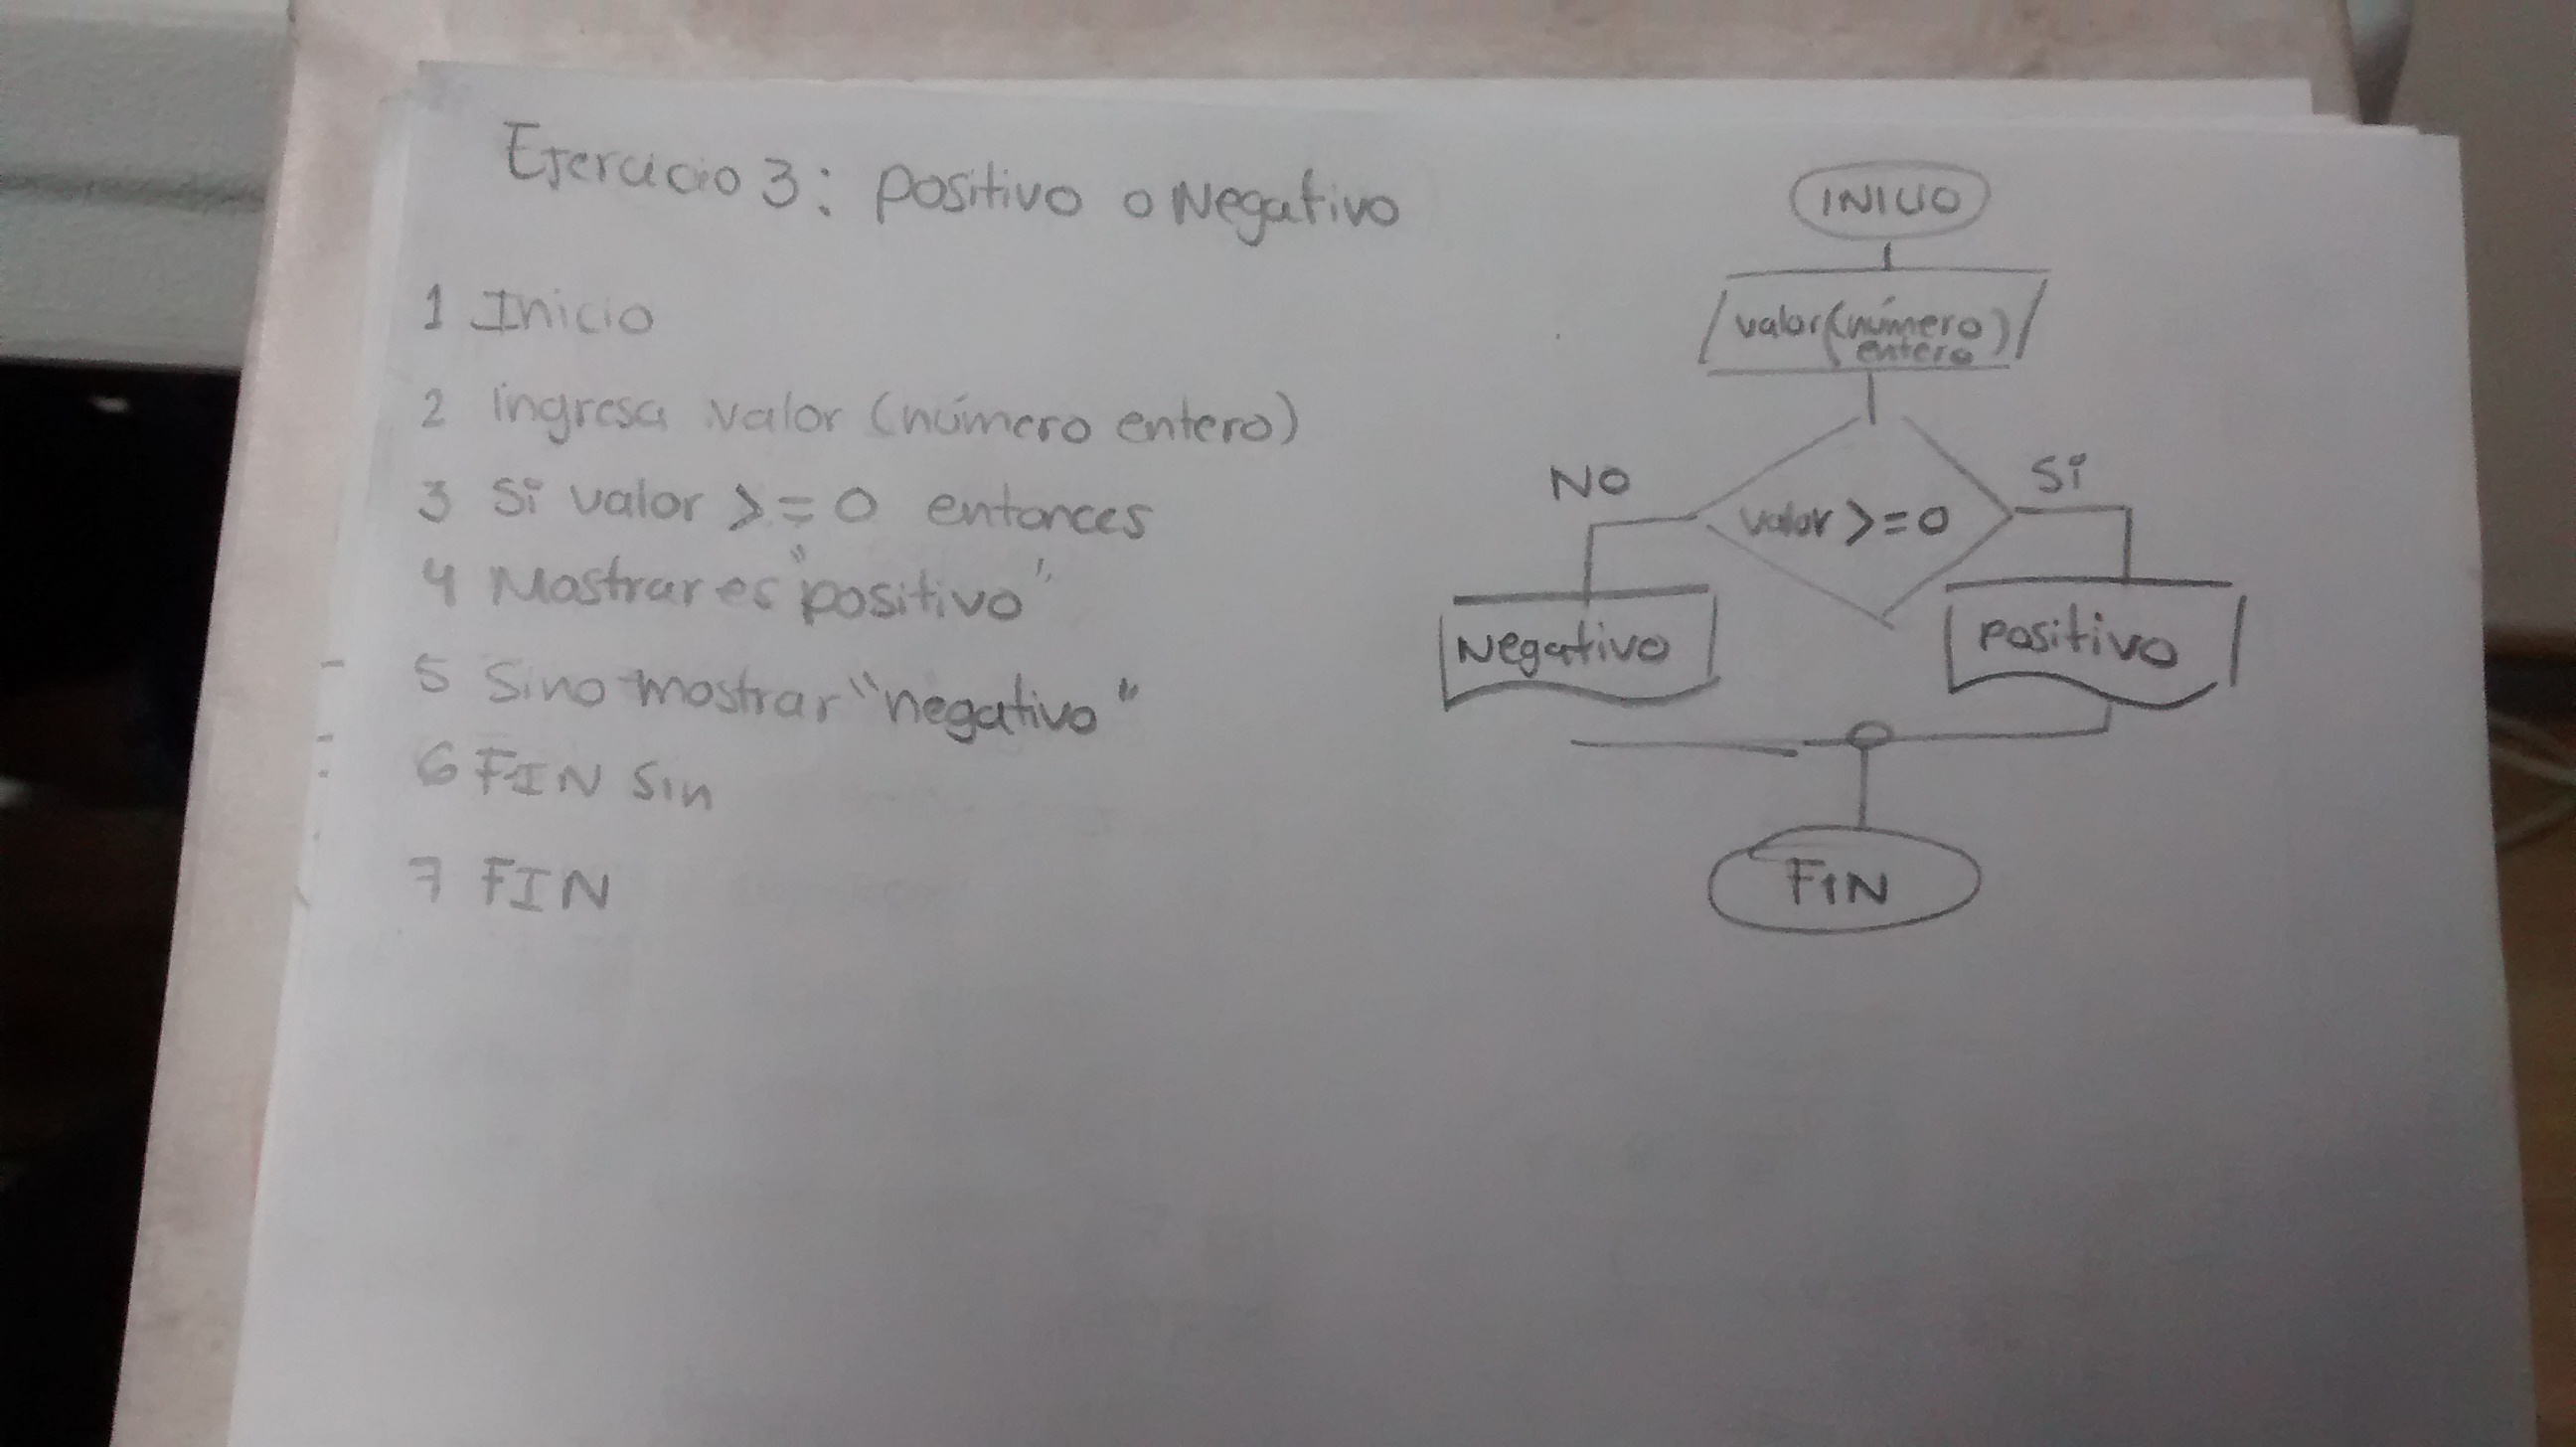 Ejercicio 3: positivo o Negativo
1 Inicio
2 ingresa valor (número entero)
3 Si valor >= 0 entonces
4 Mostrar es "positivo"
5 Sino mostrar "negativo"
6 FIN Sin
7 FIN
INICIO
valor (número
entero)
valor >= 0
NO
Si
Negativo
Positivo
FIN